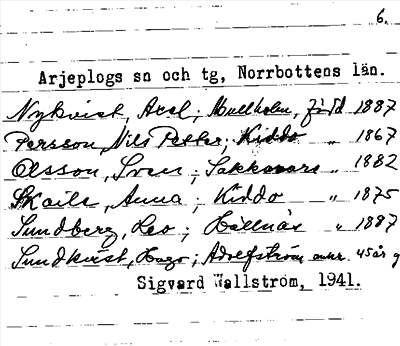 6.
Arjeplogs sn och tg, Norrbottens län.
Nykvist, Axel; Mullholm, född 1887
Persson, Nils Petter; Kiddo " 1867
Olsson, Sven; Sakkavare " 1882
Skaile, Anna; Kiddo " 1875
Sundberg, Leo; Hällnäs " 1887
Sundkvist, Hugo; Adolfström omkr. 45 år g
Sigvard Wallström, 1941.